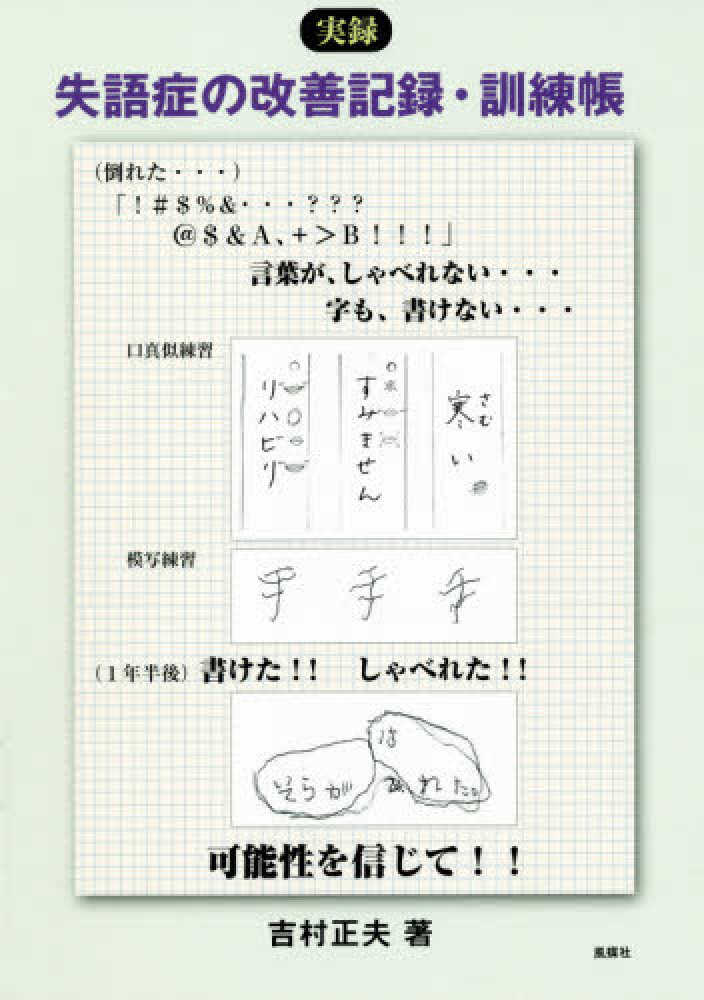 実録
失語症の改善記録・訓練帳
（倒れた・・・）
「！＃＄％＆・・・？？？
＠＄＆Ａ、＋＞Ｂ！！！」
言葉が、しゃべれない・・・
字も、書けない・・・
口真似練習
さむ
寒い
すみません
リハビリ
模写練習
手 手 手
（１年半後）書けた！！ しゃべれた！！
そらが
は
れた。
可能性を信じて！！
吉村正夫 著
風媒社